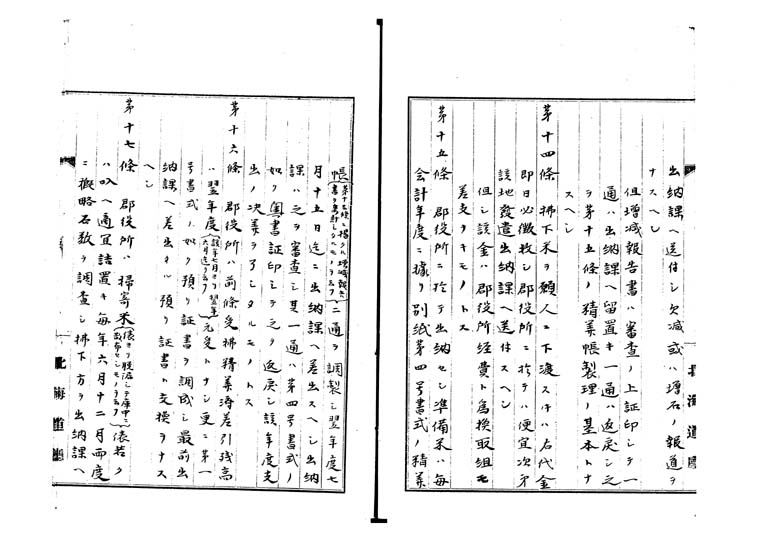 出納課ヘ送付シ欠減或ハ増石ノ報道ヲ
ナスヘシ
但増減報告書ハ審査ノ上証印シテ一
通ハ出納課ヘ留置キ一通ハ返戻シ之
ヲ第十五條ノ精美帳製理ノ基本トナ
スヘシ
第十四條 拂下米ヲ願人ニ下渡スキハ右代金
即日必徴收シ郡役所ニ於テハ便宜次第
該地發遣出納課ヘ送付スヘシ
但シ該金ハ郡役所経費ト為換取組モ
差支ヲキモノトス
第十五條 郡役所ニ於テ出納セシ準備米ハ毎
会計年度ニ據リ別紙第四号書式ノ精美
帳 二通ヲ調製シ翌年度七
月十五日迄ニ出納課ヘ差出スヘシ出納
課ハ之ヲ審査シ其一通ハ第四号書式ノ
如ク奥書証印シテ之ヲ返戻シ該年度支
出ノ次美ヲ了シタルモノトス
第十六條 郡役所ハ前條受拂精美済差引残高
ハ翌年度 元受トナシ更ニ第一
号書式ノ如ク預リ証書ヲ調成シ最前出
納課ヘ差出タル預リ証書ト交換ヲナス
ヘシ
第十七條 郡役所ハ掃寄米 俵若ク
ハ叺ヘ適宜詰置キ毎年六月十二月両度
ニ概略石数ヲ調査シ拂下方ヲ出納課ヘ
北海道廳